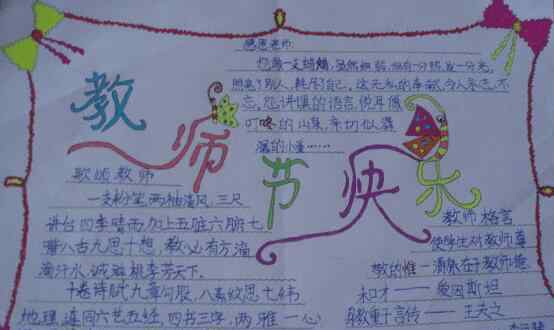 感恩老师
您像一支蜡烛,虽然细弱,但有一分热,发一分光,
照亮了别人,耗尽了自己。这无私的奉献,令人永志不
忘。您讲课的语言,悦耳像
叮咚的山泉,亲切似潺
潺的小溪……
教师节快乐
歌颂教师
一支粉笔两袖清风,三尺
讲台四季晴雨,加上五脏六腑七
嘴八舌九思十想,教必有方滴
滴汗水,诚滋桃李芳天下。
十卷诗赋九章勾股,八索文思七纬
地理,连同六艺五经,四书三字,两雅一心
教师格言
使学生对教师尊
敬的惟一源泉在于教师德
和才——爱因斯坦
身教重于言传——王夫之